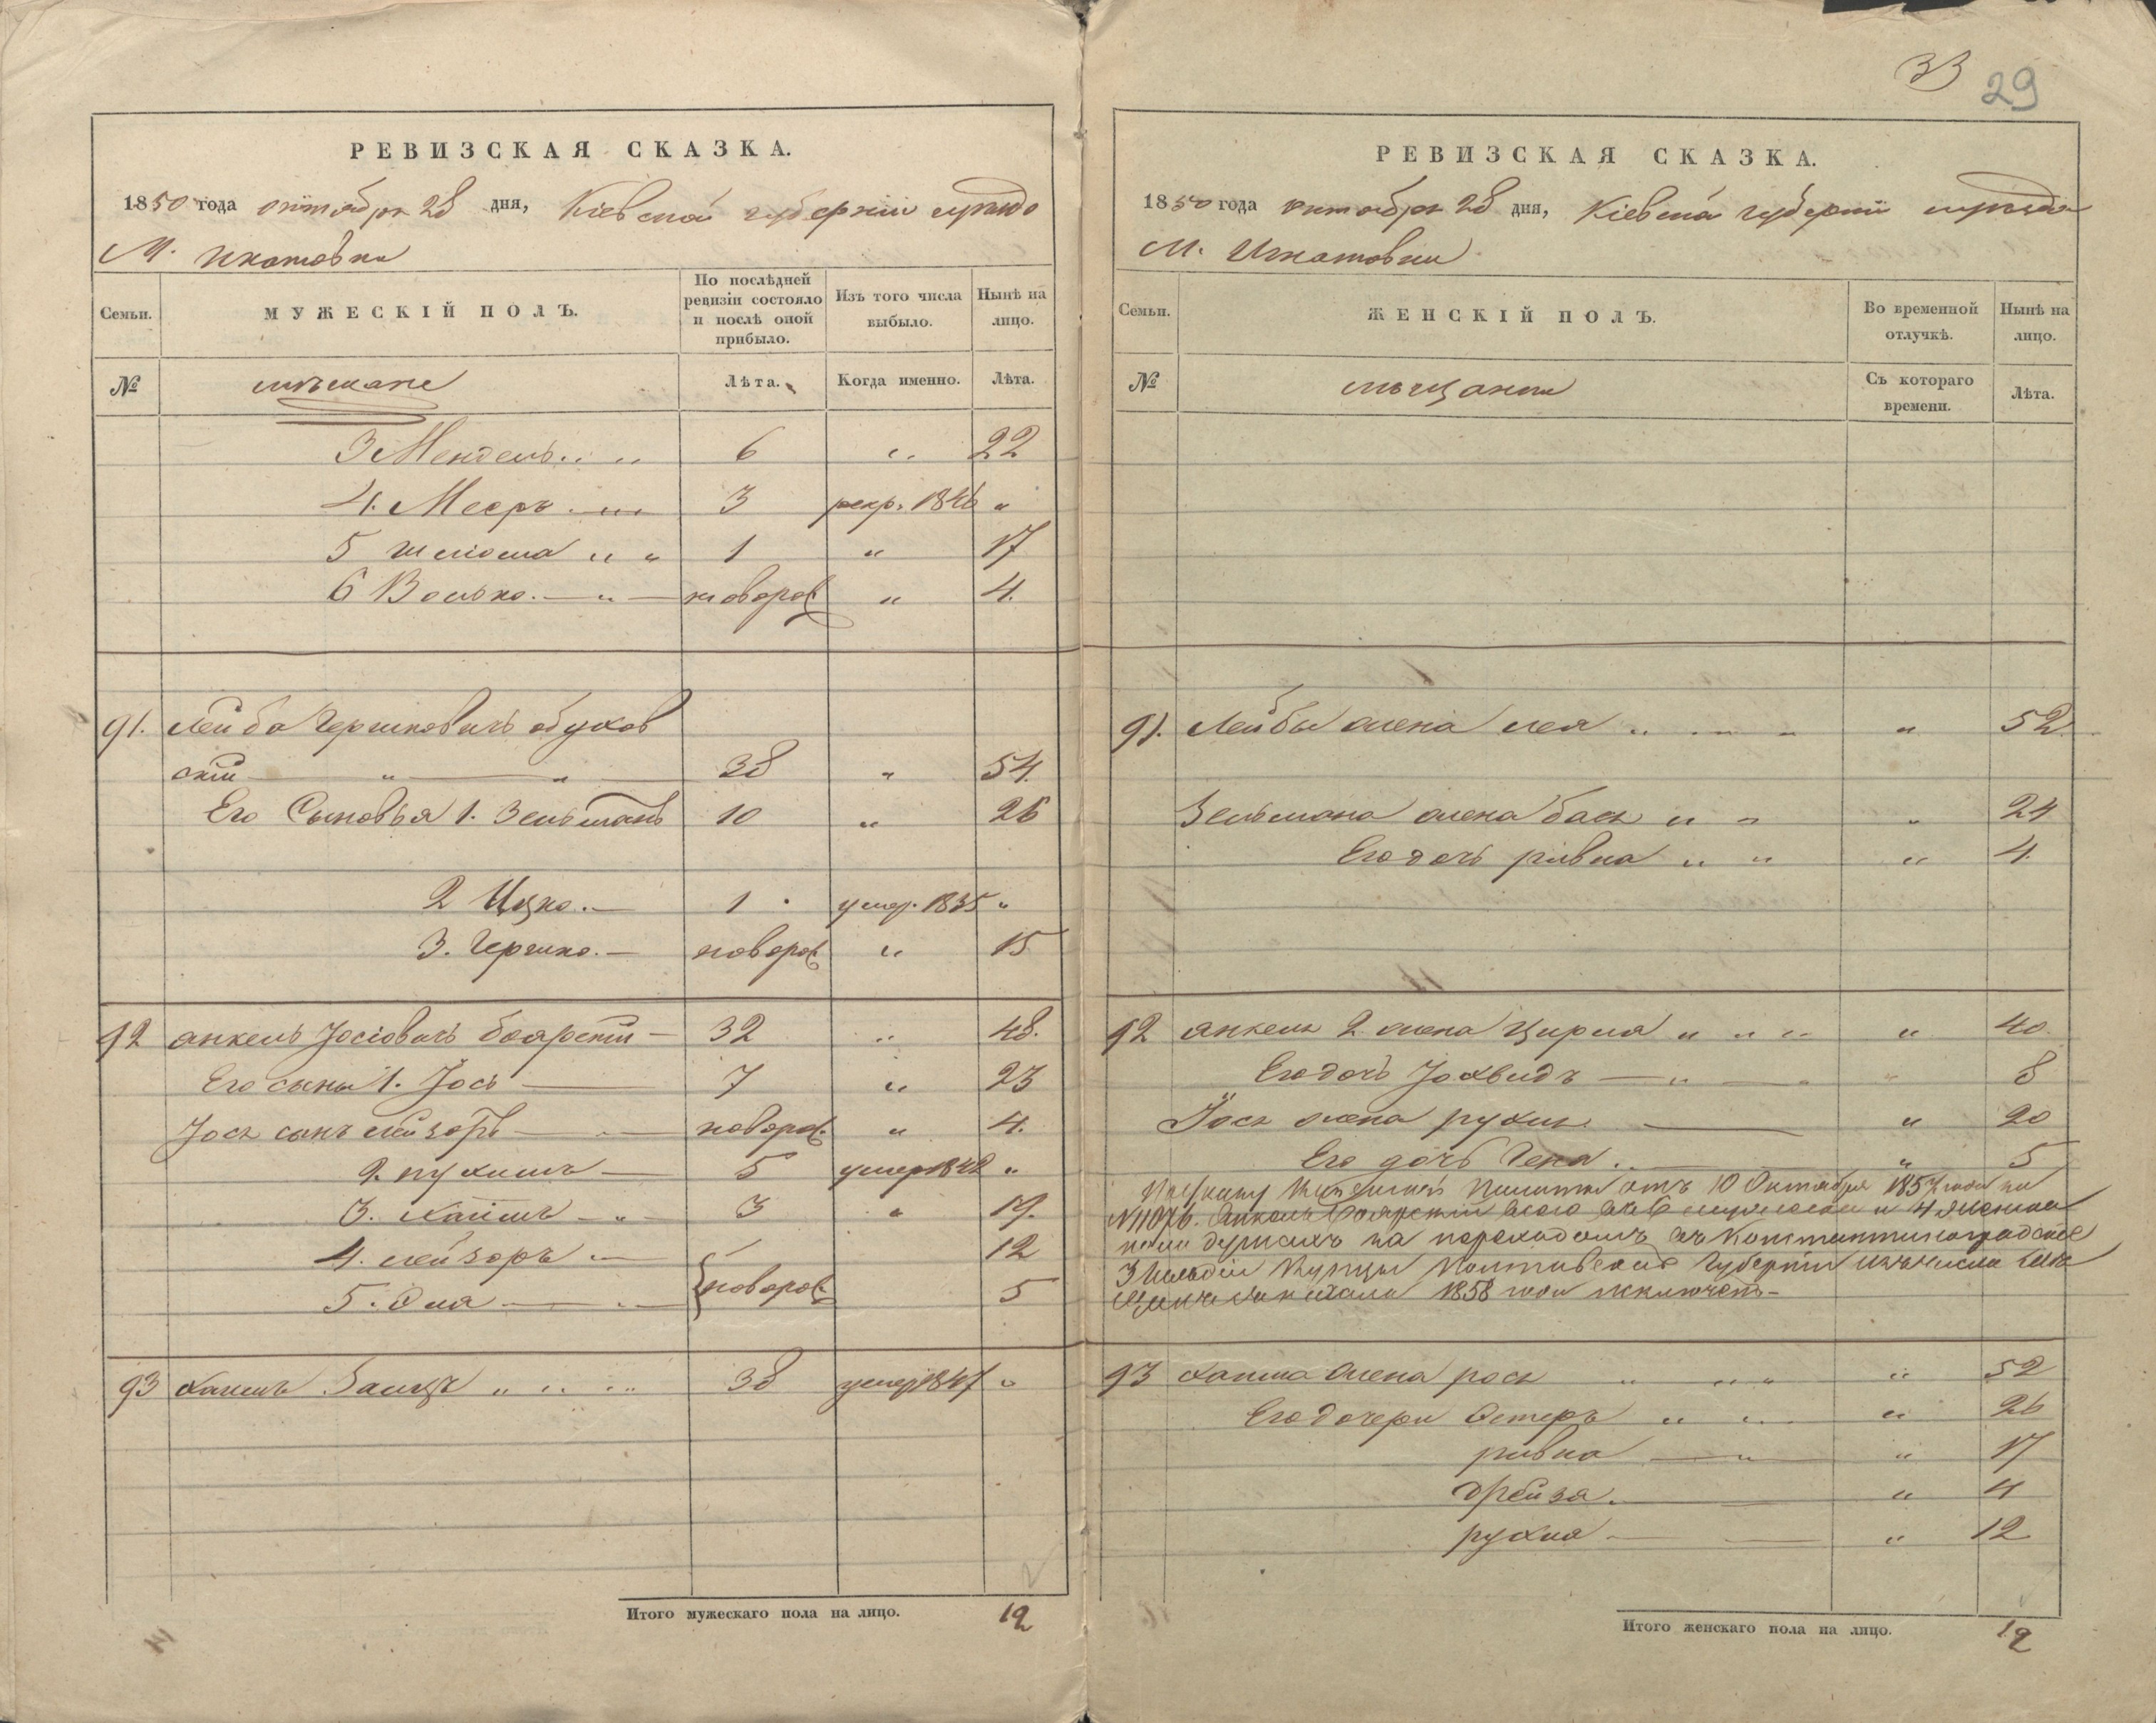 33 29
РЕВИЗСКАЯ СКАЗКА.
1850 года октября 28 дня, Кіевской губерніи уѣзда
М. Игнатовки
Семьи. МУЖЕСКІЙ ПОЛЪ. По послѣдней ревизіи состояло и послѣ оной прибыло. Изъ того числа выбыло. Нынѣ на лицо.
№ мѣщане Лѣта. Когда именно. Лѣта.
3 Мендель 6 " 22
4. Мееръ 3 рекр. 1846 "
5 Шліома " " 1 " 17
6 Волько новорож " 4.
91. Лейба Гершковичъ обухов
скій " " 38 " 54.
Его Сыновья 1. Зельманъ 10 " 26
2 Ицко. 1 умер. 1835 "
3. Гершко. новорож " 15
92 Янкель Іосіовичъ боярскій 32 " 48.
Его сыны 1. Іось 7 " 23
Іося сынъ лейзоръ новорож " 4.
2. нухимъ 5 умер 1842 "
3. Хаимъ 3 " 19.
4. лейзоръ 12
5. Эля новорож 5
93 Хаимъ " " " 38 умер 1847 "
Итого мужескаго пола на лицо. 12
РЕВИЗСКАЯ СКАЗКА.
1850 года октября 28 дня, Кіевской губерніи уѣзда
М. Игнатовки
Семьи. ЖЕНСКІЙ ПОЛЪ. Во временной отлучкѣ. Нынѣ на лицо.
№ мѣщанки Съ котораго времени. Лѣта.
91. Лейбы жена лея " " " " 52.
Зельмана жена бася " " " 24
Его дочь ривка " " " 4.
92 Янкеля 2 жена Цирля " " " " 40.
Его дочь Іохвидъ " " 8
Іося жена рухля " 20
Его дочь Гена. " 5
По указу Казенной Палаты отъ 10 Октября 1857 года за
№ 11076. Янкель Боярскій всего въ 6 мужеска и 4 женска
пола душахъ за переходомъ въ Константиноградскіе
3 гильдіи Купцы Полтавской Губерніи изъ числа
съ начала 1858 года исключенъ
93 Хаима жена рося " " " " 52
Его дочери Эстеръ " " " 26
ривка " " 17
Фрейза. " 4
рухля " 12
Итого женскаго пола на лицо. 12